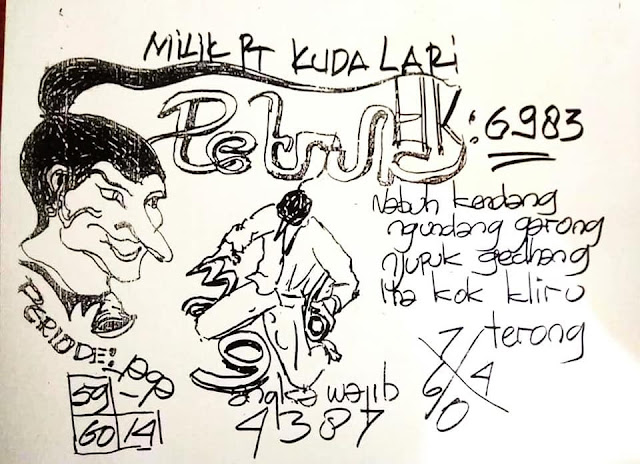 MILIK PT KUDA LARI
Petruk : 6983
Nabuh kendang
ngundang garong
njupuk gedhang
lha kok kliru
terong
PERIODE: PP
59
60 14
angka wajib
4387
7
6 4
0